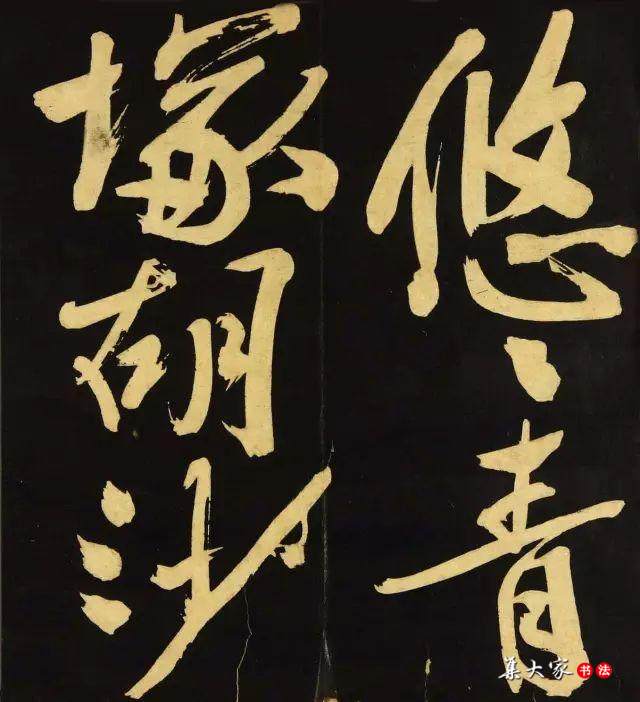 悠〻青
塚胡沙
集大家书法